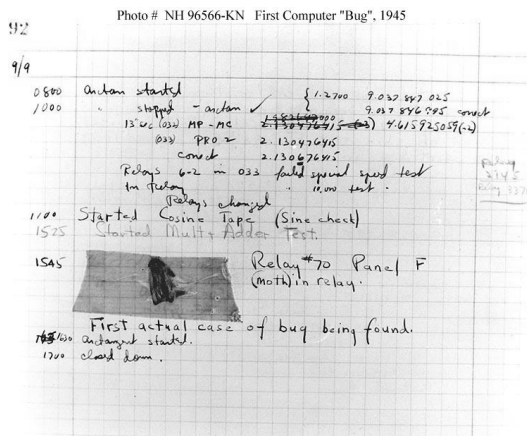 Photo # NH 96566-KN First Computer "Bug", 1945
92
9/9
0800 Antan started { 1.2700 9.037 847 025
1000 " stopped - antan ✓ 9.037 846 995 correct
13"uc (032) MP - MC 2.130476415 4.615925059(-2)
(033) PRO 2 2.130476415
correct 2.130676415
Relays 6-2 in 033 failed special speed test
in relay " 10,000 test .
Relays changed
1100 Started Cosine Tape (Sine check)
1525 Started Mult + Adder Test.
1545 Relay #70 Panel F
(moth) in relay.
First actual case of bug being found.
1630 antangent started.
1700 closed down.